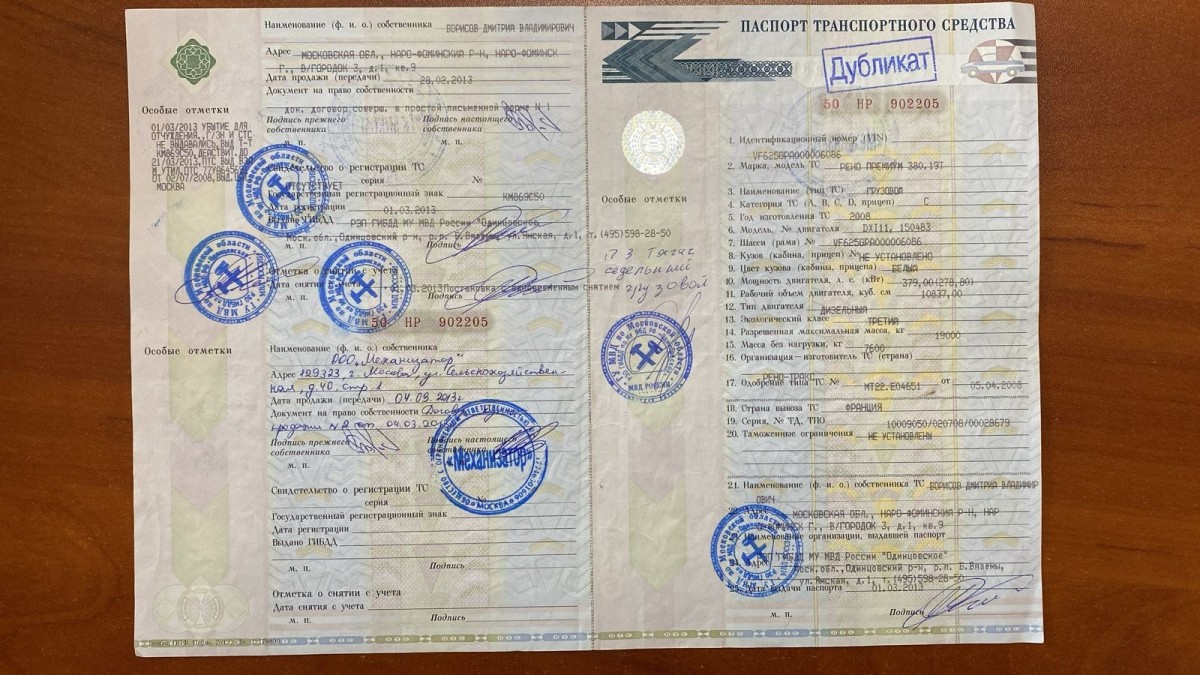 Наименование (ф. и. о.) собственника БОРИСОВ ДМИТРИЙ ВЛАДИМИРОВИЧ
Адрес МОСКОВСКАЯ ОБЛ., НАРО-ФОМИНСКИЙ Р-Н, НАРО-ФОМИНСК
Г., В/ГОРОДОК 3, д.1, кв.9
Дата продажи (передачи) 28.02.2013
Документ на право собственности
док. договор,соверш. в простой письменной форме N 1
Подпись прежнего собственника
Подпись настоящего собственника
м. п. м. п.
Особые отметки
01/03/2013 УБЫТИЕ ДЛЯ
ОТЧУЖДЕНИЯ.,Г/ЗН И СТС
НЕ ВЫДАВАЛИСЬ,ВЫД Т-Т
КМ869С50,ДЕЙСТВИТ.ДО
21/03/2013,ПТС ВЫД
И УТИЛ.ПТС
ОТ 02/07/2008,ВЫД.
МОСКВА
Свидетельство о регистрации ТС
серия №
ОТСУТСТВУЕТ
Государственный регистрационный знак КМ869С50
Дата регистрации 01.03.2013
Выдано ГИБДД РЭП ГИБДД МУ МВД России "Одинцовское
Моск.обл.,Одинцовский р-н, р.п. Б.Вяземы ул.Ямская, д.1, т.(495)598-28-50
м. п. Подпись
Отметка о снятии с учета
Дата снятия с учета .03.2013Постановка с одновременным снятием
м. п. Подпись
50 НР 902205
Особые отметки
Наименование (ф. и. о.) собственника
ООО „Механизатор"
Адрес 129323, г. Москва, ул. Сельскохозяйствен-
ная, д.40, стр. 1
Дата продажи (передачи) 04.03.2013г
Документ на право собственности Договор
продажи №2 от 04.03.2013
Подпись прежнего собственника
Подпись настоящего собственника
м. п. м. п.
«Механизатор»
МОСКВА
Свидетельство о регистрации ТС
серия №
Государственный регистрационный знак
Дата регистрации
Выдано ГИБДД
м. п. Подпись
Отметка о снятии с учета
Дата снятия с учета
м. п. Подпись
ПАСПОРТ ТРАНСПОРТНОГО СРЕДСТВА
Дубликат
50 НР 902205
1. Идентификационный номер (VIN)
VF625GPA000006086
2. Марка, модель ТС РЕНО ПРЕМИУМ 380.19Т
3. Наименование (тип ТС) ГРУЗОВОЙ
4. Категория ТС (А, В, С, D, прицеп) С
5. Год изготовления ТС 2008
6. Модель, № двигателя DXI11, 150483
7. Шасси (рама) № VF625GPA000006086
8. Кузов (кабина, прицеп) № НЕ УСТАНОВЛЕНО
9. Цвет кузова (кабины, прицепа) БЕЛЫЙ
10. Мощность двигателя, л. с. (кВт) 379,00(278,80)
11. Рабочий объем двигателя, куб. см 10837,00
12. Тип двигателя ДИЗЕЛЬНЫЙ
13. Экологический класс ТРЕТИЙ
14. Разрешенная максимальная масса, кг 19000
15. Масса без нагрузки, кг 7600
16. Организация-изготовитель ТС (страна)
РЕНО-ТРАКС
17. Одобрение типа ТС № МТ22.Е04651 от 05.04.2008
18. Страна вывоза ТС ФРАНЦИЯ
19. Серия, № ТД, ТПО 10009050/020708/00028679
20. Таможенные ограничения НЕ УСТАНОВЛЕНЫ
21. Наименование (ф. и. о.) собственника ТС БОРИСОВ ДМИТРИЙ ВЛАДИМИР
ОВИЧ
22. Адрес МОСКОВСКАЯ ОБЛ., НАРО-ФОМИНСКИЙ Р-Н, НАР
О-ФОМИНСК Г., В/ГОРОДОК 3, д.1, кв.9
23. Наименование организации, выдавшей паспорт
РЭП ГИБДД МУ МВД России "Одинцовское"
24. Адрес Моск.обл.,Одинцовский р-н, р.п. Б.Вяземы,
ул.Ямская, д.1, т.(495)598-28-50
25. Дата выдачи паспорта 01.03.2013
м. п. Подпись
Особые отметки
п 3 Тягач
седельный
грузовой